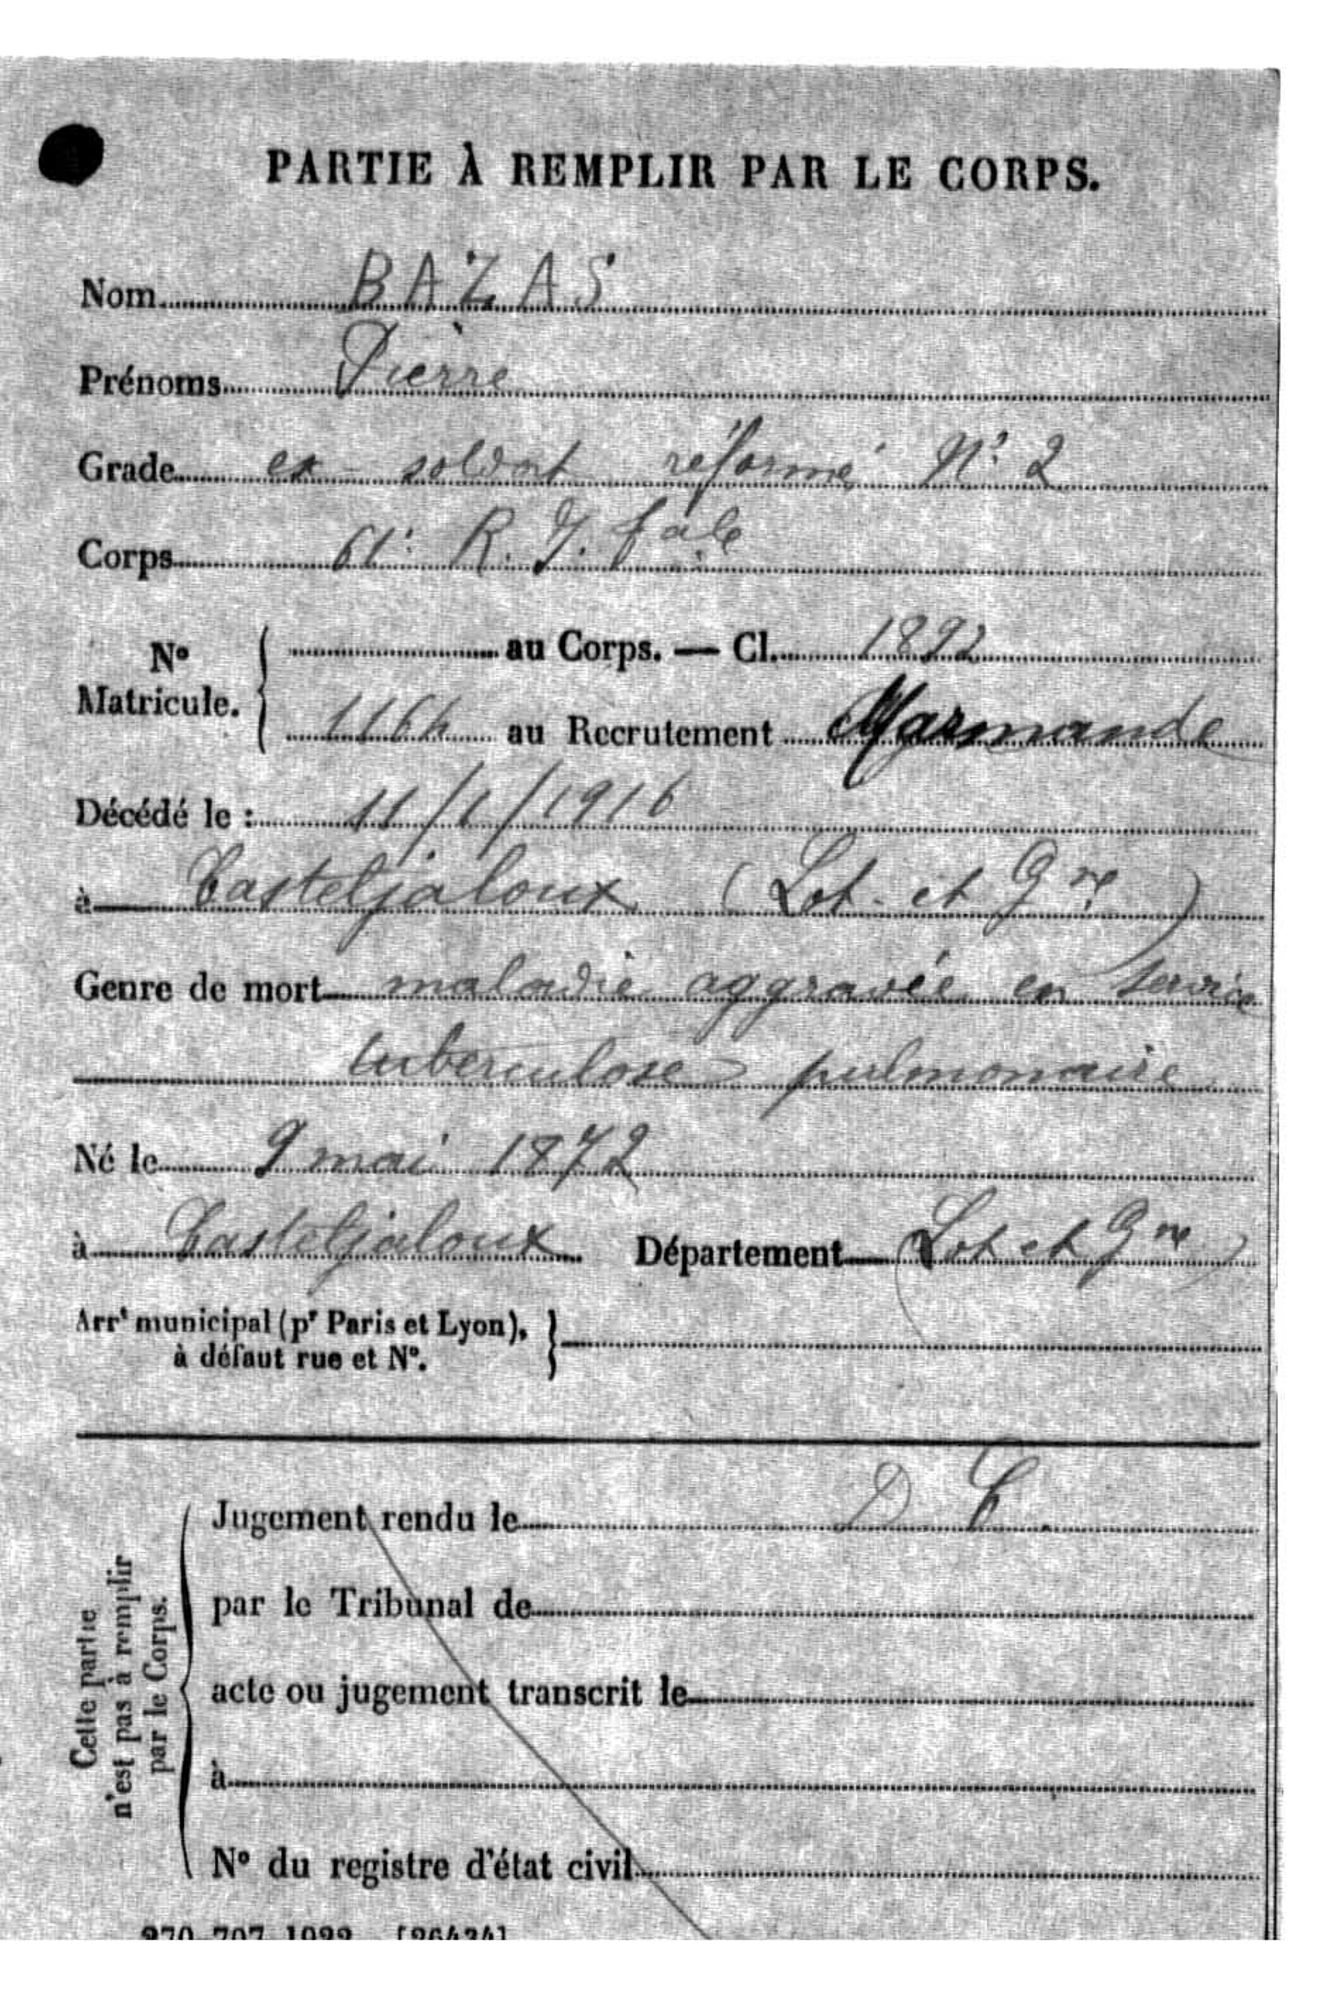 PARTIE À REMPLIR PAR LE CORPS.
Nom BAZAS
Prénoms Pierre
Grade ex-soldat réformé N° 2
Corps 61: R. I. f ale
N° Matricule. au Corps. — Cl. 1892
1164 au Recrutement Marmande
Décédé le : 11/1/1916
à Casteljaloux (Lot-et Gne)
Genre de mort maladie aggravée en service
tuberculose pulmonaire
Né le 9 mai 1872
à Casteljaloux Département (Lot et Gne)
Arrt municipal (pr Paris et Lyon),
à défaut rue et N°.
D C
Cette partie
n'est pas à remplir
par le Corps.
Jugement rendu le
par le Tribunal de
acte ou jugement transcrit le
à
N° du registre d'état civil
270-707-1922. [26434]